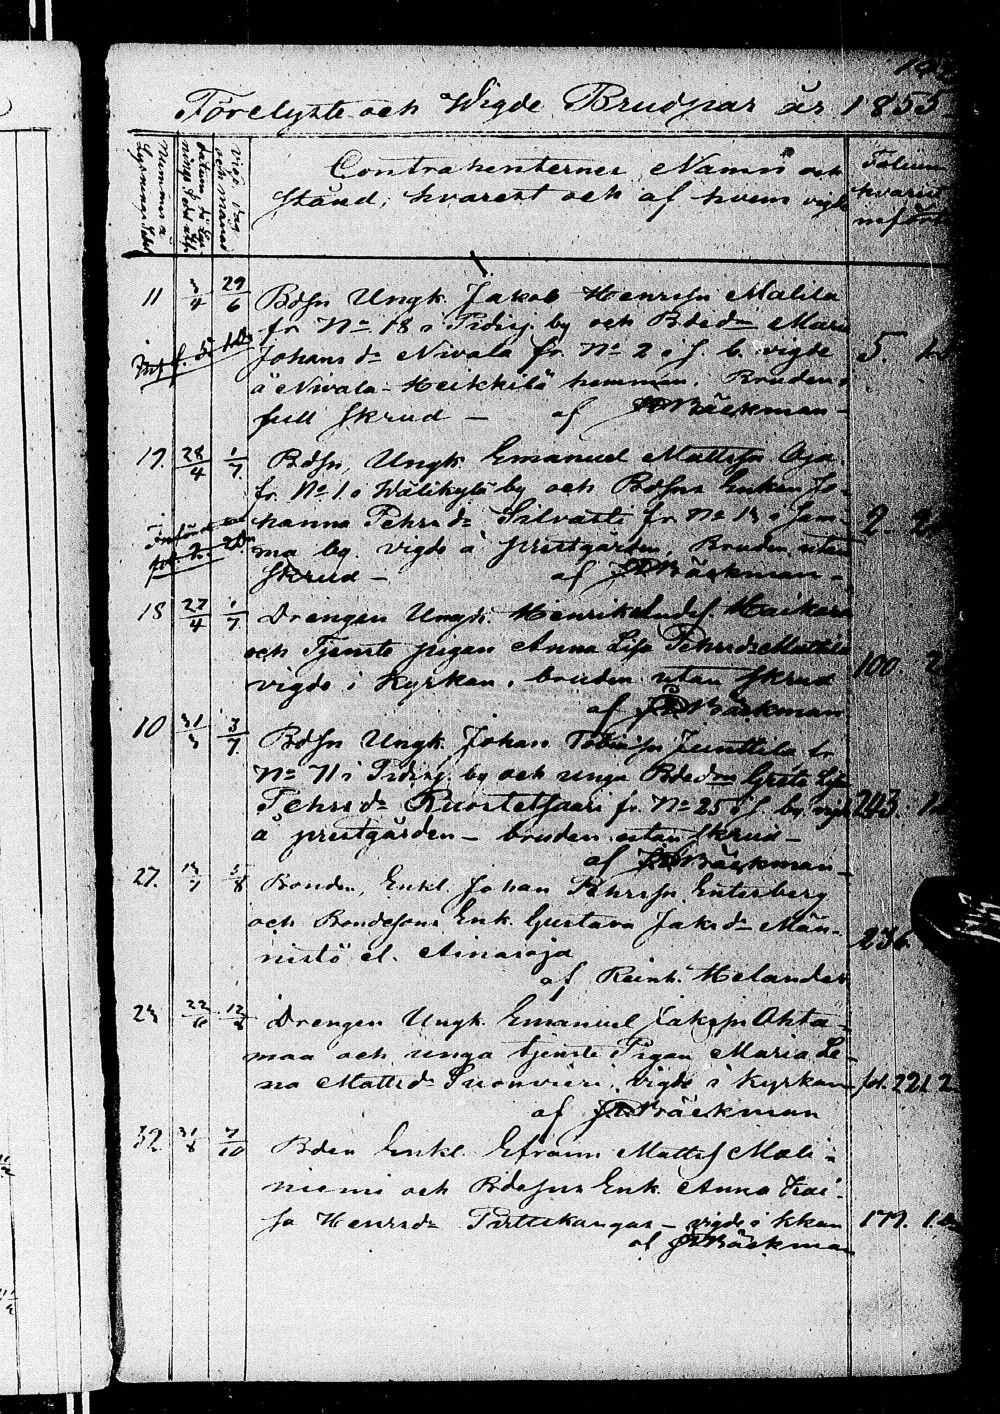 Förelyste och Wigde Brudpar år 1855
Contrahenternes Namn och
Stånd, hvarest och af hvem vigde
Folium
hvarest
införde
11 29/6 Bdsn Ungk. Jakob Henrssn Malila
fr No 18 i Pidisj. by och Bdedr Maria
Johans dr Nivala fr. No 2 i s. b. vigde 5.
å Nivala Heikkilä hemman. Bruden i
full skrud — af Bäckman —
17. 28/4 1/7 Bdsn, Ungk. Emanuel Mattssn Oja
fr. No 1 i Wälikylä by och Bdsns Enkan Jo-
hanna Pehrs dr Silvasti fr No 13 i sam- 2.
ma by. vigde å prestgården, Bruden utan
skrud — af Bäckman —
18 27/4 1/7 Drengen Ungk. Henrik
och Tjenste pigan Anna Lisa Pehrsdr Mattila 100
vigde i Kyrkan, bruden utan skrud
af Bäckman
10 31/3 3/7 Bdsn Ungk. Johan Tobiassn Junttila fr
No 71 i Pidisj. by och unga Bdedr Greta Lisa
Pehrs dr Ruostetsaari fr. No 25 i s. by vigde 203.
å prestgården — bruden utan skrud —
af Bäckman —
27. Bonden, Enkl. Johan Pehrssn Enterberg
och Bondesons Enk. Gustava Jaks dr Män- 236.
nistö el. Ainasoja
af Reinh. Helander
23 Drengen Ungk. Emanuel Jakssn Ohta-
maa och unga tjenste Pigan Maria Le-
na Matts dr Suonvieri, vigde i Kyrkan fol. 221 2
af Bäckman
32 31/8 7/10 Bden Enkl. Efraim Mattss Mali-
niemi och Bdesns Enk. Anna Kai-
sa Henrs dr Parttikangas — vigde i kkan 179.
af Bäckman